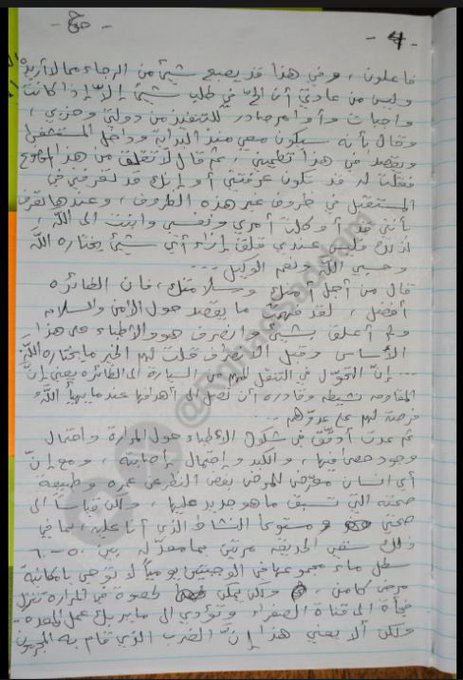 - 4 -
- ج -
فاعلون ، وفي هذا قد يصبح شيئ من الرجاء مما لا أريده
وليس من عادتي أن الحّ في طلب شيئ إلاّ إذا كانت
واجبات وأوامر صادرة للتنفيذ من دولتي وحزبي ،
وقال بأنه سيكون معي منذ البداية وداخل المستشفى
ويقصد في هذا تطميني ، ثم قال لا تقلق من هذا الموضوع
فقلت له قد تكون عرفتني أو إنك قد تعرفني في
المستقبل في ظروف غير هذه الظروف ، وعندها تعرف
بأنني قد أوكلت أمري ونفسي وابنت الى اللّه ،
لذلك فليس عندي قلق إزاء أي شيئ يختاره اللّه
وحسبي اللّه ونعم الوكيل ...
قال من أجل أمنك وسلامتك ، فان الطائره
أفضل ، لقد فهمت ما يقصد حول الأمن والسلامه
ولم أعلق بشيئ وانصرف هو والأطباء على هذا
الأساس وقبل أن ينصرف قلت لهم الخير ما يختاره اللّه
... إنّ التحوّل في التنقل للهم من السيارة الى الطائره يعني إنّ
المقاومه نشيطه وقادره أن تصل الى أهدافها عندما يهيأ اللّه
فرصة لهم على عدوّهم ...
ثم عدت أدقّق في شكوك الأطباء حول المرارة واحتمال
وجود حصى فيها ، والكبد واحتمال إصابته ومع إنّ
أي انسان معرّض للمرض بغض النظر عن عمره وطبيعة
صحته التي تسبق ما هو جديد عليها ، ولكن قياساً الى
صحتي ومستوى النشاط الذي أنا عليه ، بما في
ذلك سقي الحديقه مرتين بما معدّله بين ٥٠ - ٦٠
سطل ماء مجموعها في الوجبتين يومياً لا توحي بإمكانية
مرض كامن ، ولكن يمكن لحصوة في المرارة تنزل
فجأة الى قناة الصفراء وتؤدي الى ما يربك عمل المعدة -
ولكن ألا يعني هذا إنّ الضرب الذي قام به المجرمون
@RghadSaddam